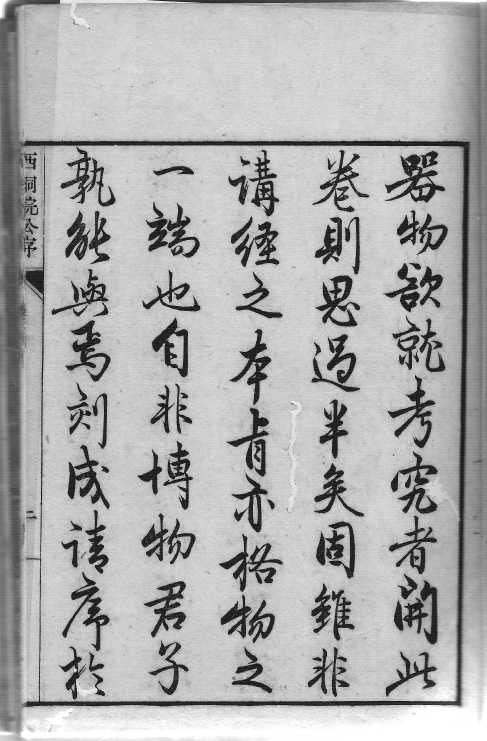 器物欲就考究者開此
卷則思過半矣固雖非
講經之本旨亦格物之
一端也自非博物君子
孰能與焉刻成請序於
西洞院公序
二